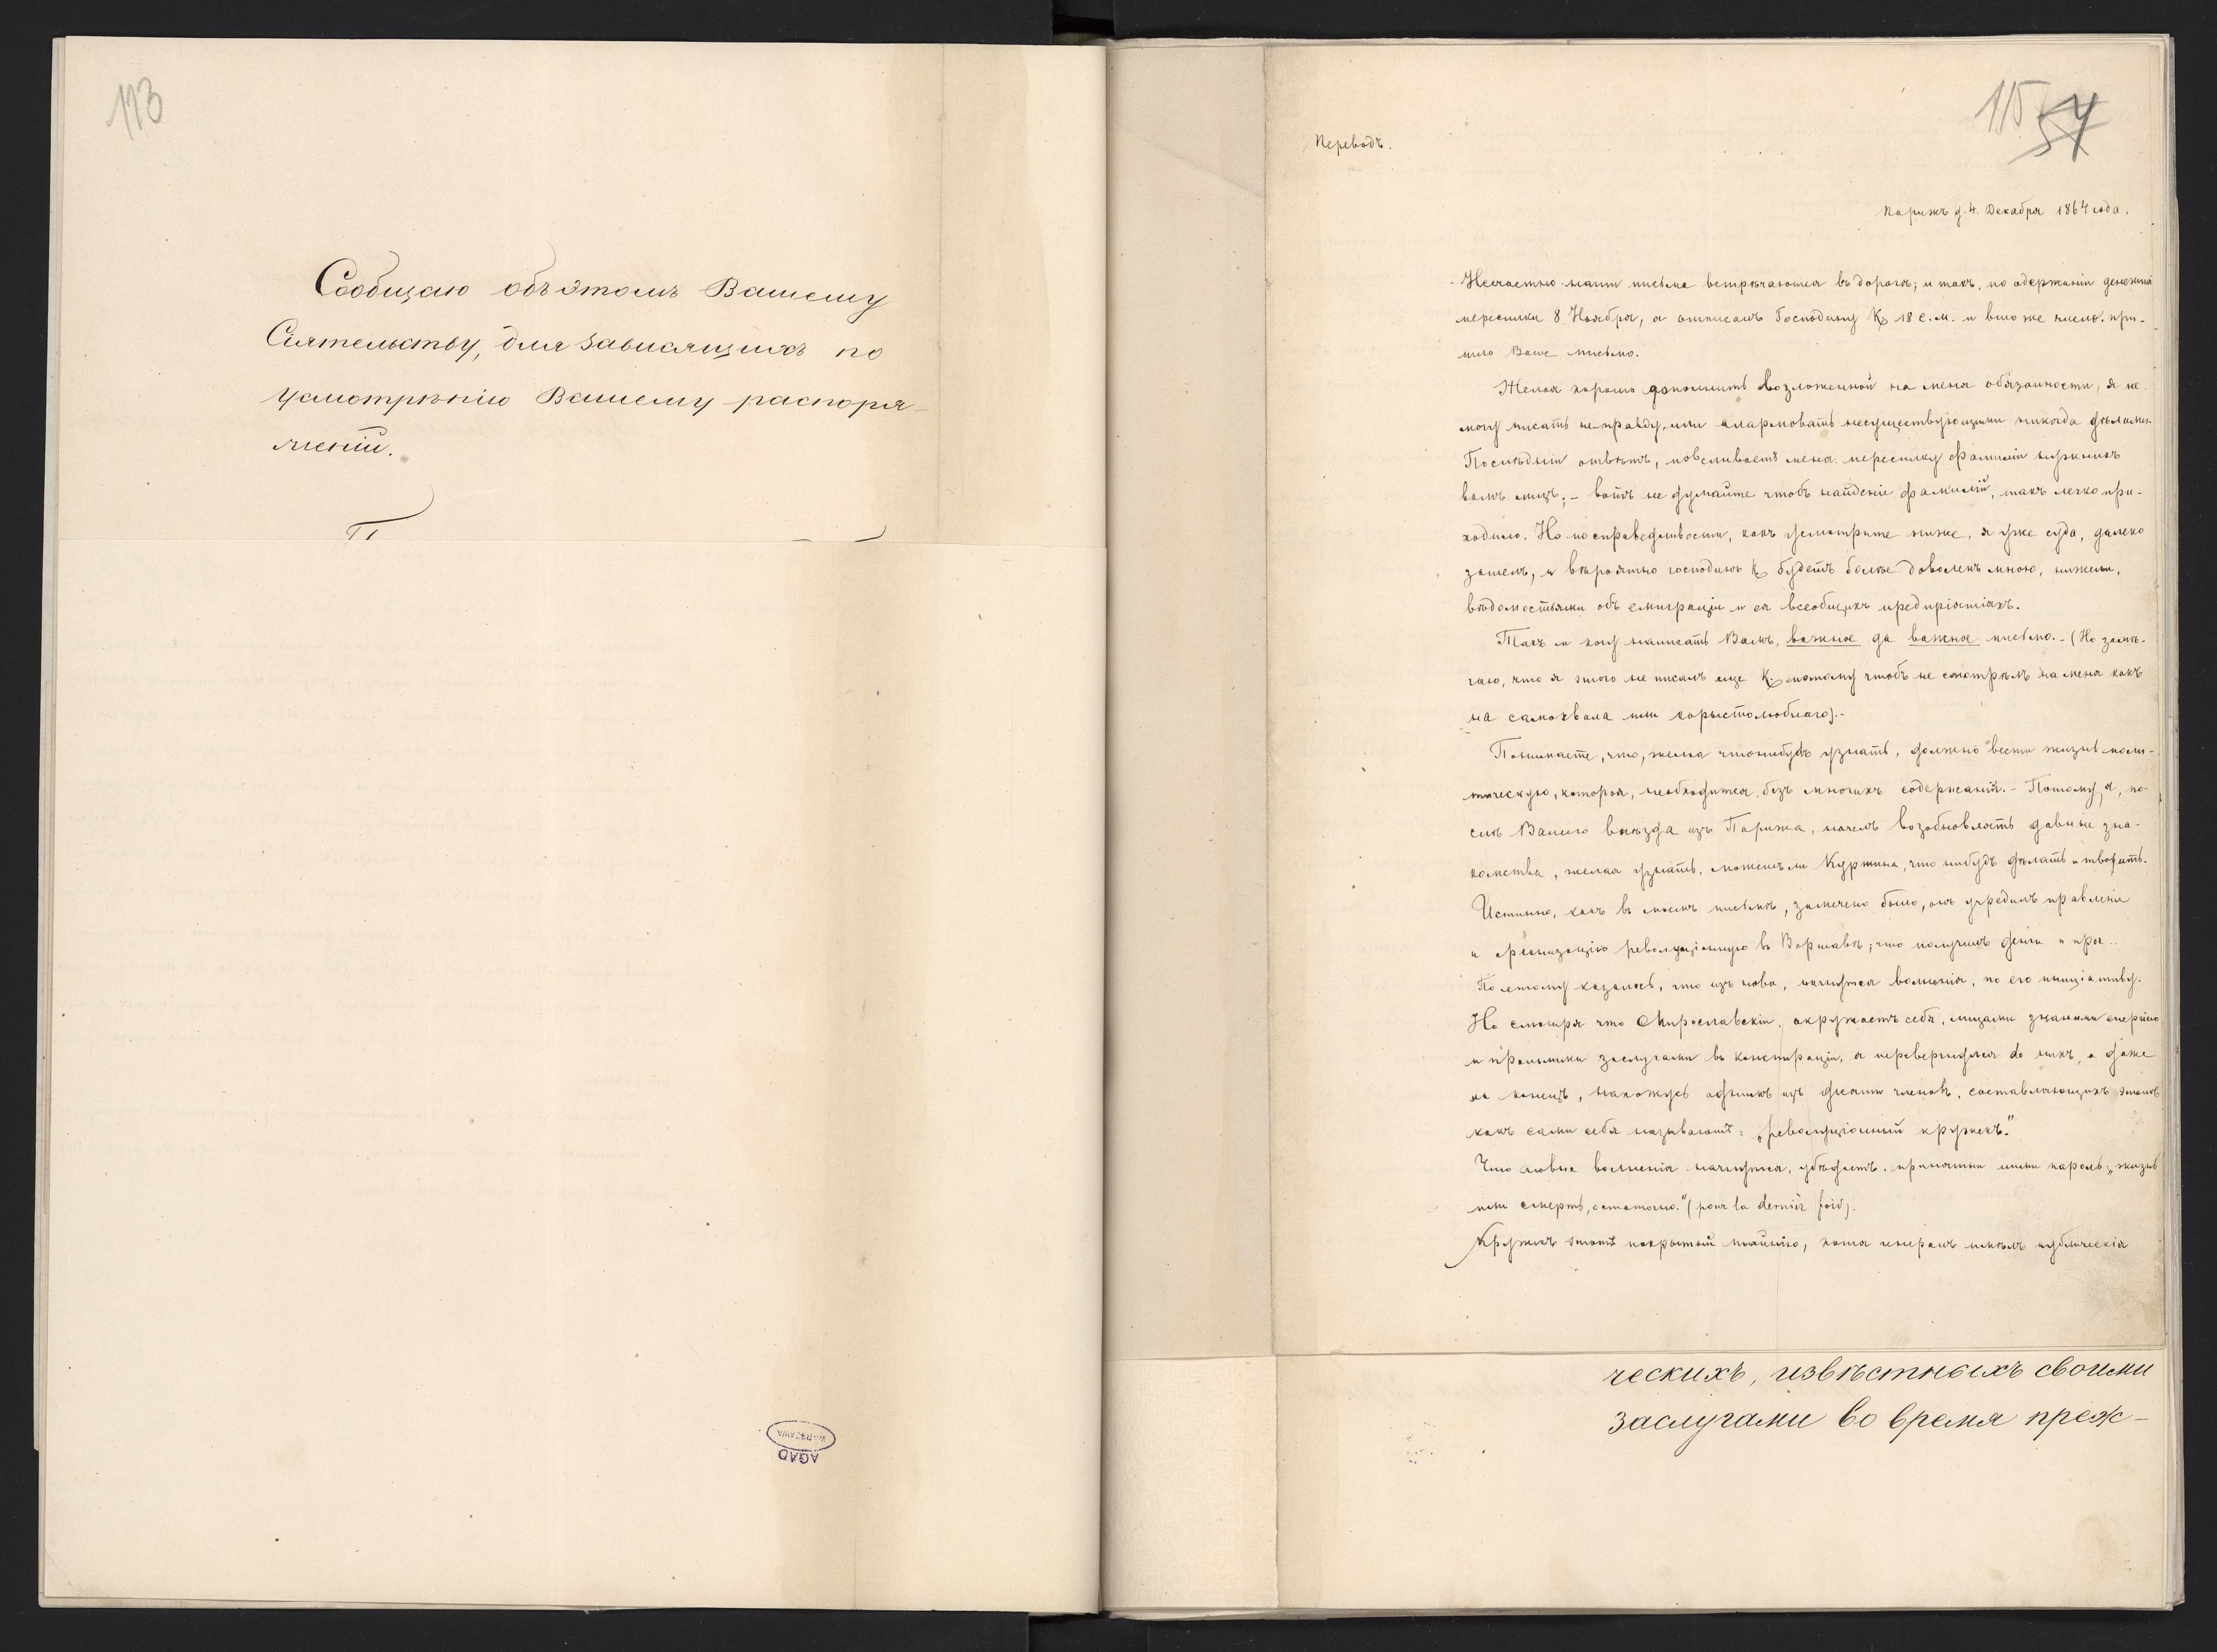 113
Сообщаю объ этомъ Вашему
Сіятельству, для зависящихъ по
усмотрѣнію Вашему распоря-
женій.
AGAD
WARSZAWA
115
54
Переводъ.
Парижъ д. 4. Декабря 1864 года.
Несчастно наши письма встрѣчаются въ дорогѣ; и такъ, по одержаніи
пересилки 8 Ноября, я отписалъ Господину К. 18 с. м. и в тоже число. при-
шло Ваше письмо.
Желая хорошо дополнить возложенной на меня обязанности, я не
могу писать неправду, или алармовать несуществующими никогда дѣлами.
Послѣдній отвѣтъ, повеливаетъ меня пересилку фамиліи нужныхъ
вамъ лицъ; - вотъ не думайте чтобъ найденіе фамилій, такъ легко при-
ходило. Но по справедливости, какъ усмотрите ниже, я уже суда, далеко
зашелъ, и вѣроятно господинъ К. будетъ болѣе доволенъ мною, нижели,
вѣдомостьями объ емиграціи и ея всеобщихъ предпріятіяхъ.
Такъ и хочу написать Вамъ, важное да важное письмо. - (Но замѣ-
чаю, что я этого не писалъ еще К. потому чтобъ не смотрѣлъ на меня какъ
на самохвала или корыстолюбнаго). -
Понимаете, что, желая что нибудь узнать, должно вести жизнь поли-
тическую, которая, необходится, безъ многихъ содержаній. - Потому, я, по-
слѣ Вашего выѣзда изъ Парижа, началъ возобновлять давные зна-
комства, желая узнать, можетъ ли Куржина, что нибудь дѣлать и творить.
Истинно, какъ въ моемъ письмѣ, замечено было, онъ учредилъ правленіе
и организацію революціонную въ Варшавѣ; что получилъ деньги и про..
Поетому казалось, что изъ нова, начнутся волненія, по его инициативу.
Но смотря что Мирославскій, окружаетъ себя, лицами знаными енергіею
и прошлыми заслугами въ конспираціи, я перевернулся до нихъ, а даже
на конецъ, нахожусь однимъ изъ десяти членовъ, составляющихъ этотъ
какъ сами себя называютъ: „революціонный кружекъ."
Что новые волненія начнутся, убѣдитъ, принятый ими пароль: „жизнь
или смерть, остаточно." (pour la dernièr fois).
Кружекъ этотъ покрытый тайною, хотя генералъ имѣлъ публическія
ческихъ, извѣстныхъ своими
заслугами во время преж-